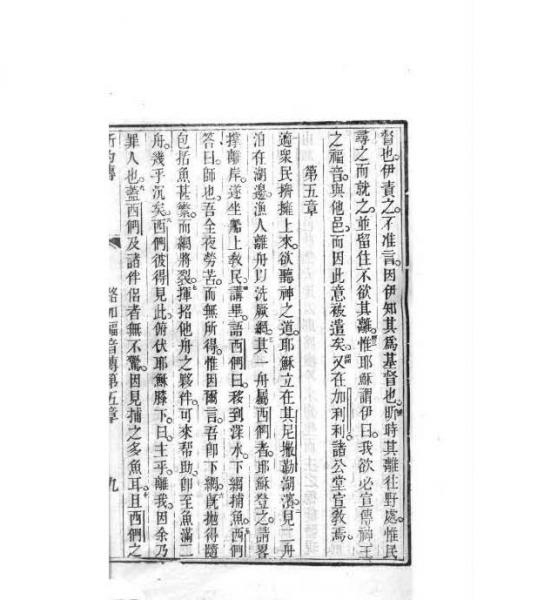 督也。伊責之不准言。因伊知其為基督也。昕時其離往野處。惟民
尋之而就之。並留住不欲其離。惟耶穌謂伊曰。我欲必宣傳神王
之福音與他邑。而因此意被遣矣。又在加利利諸公堂宣教焉。
第五章
適眾民擠擁上來。欲聽神之道。耶穌立在其尼撇勒湖濱。見二舟
泊在湖邊。漁人離舟以洗厥網。其一舟屬西們者。耶穌登之。請畧
撐離岸。遂坐船上教民。講畢。語西們曰。移到深水。下網捕魚。西們
答曰。師也。吾全夜勞苦。而無所得。惟因爾言。吾即下網。既拋得隨
包括魚甚繁。而網將裂。揮招他舟之夥伴。可來帮助。即至魚滿二
舟。幾乎沉矣。西們彼得見此。俯伏耶穌膝下。曰。主乎。離我。因余乃
罪人也。蓋西們及諸件侶者。無不驚。因見捕之多魚耳。且西們之
路加福音傳第五章 九